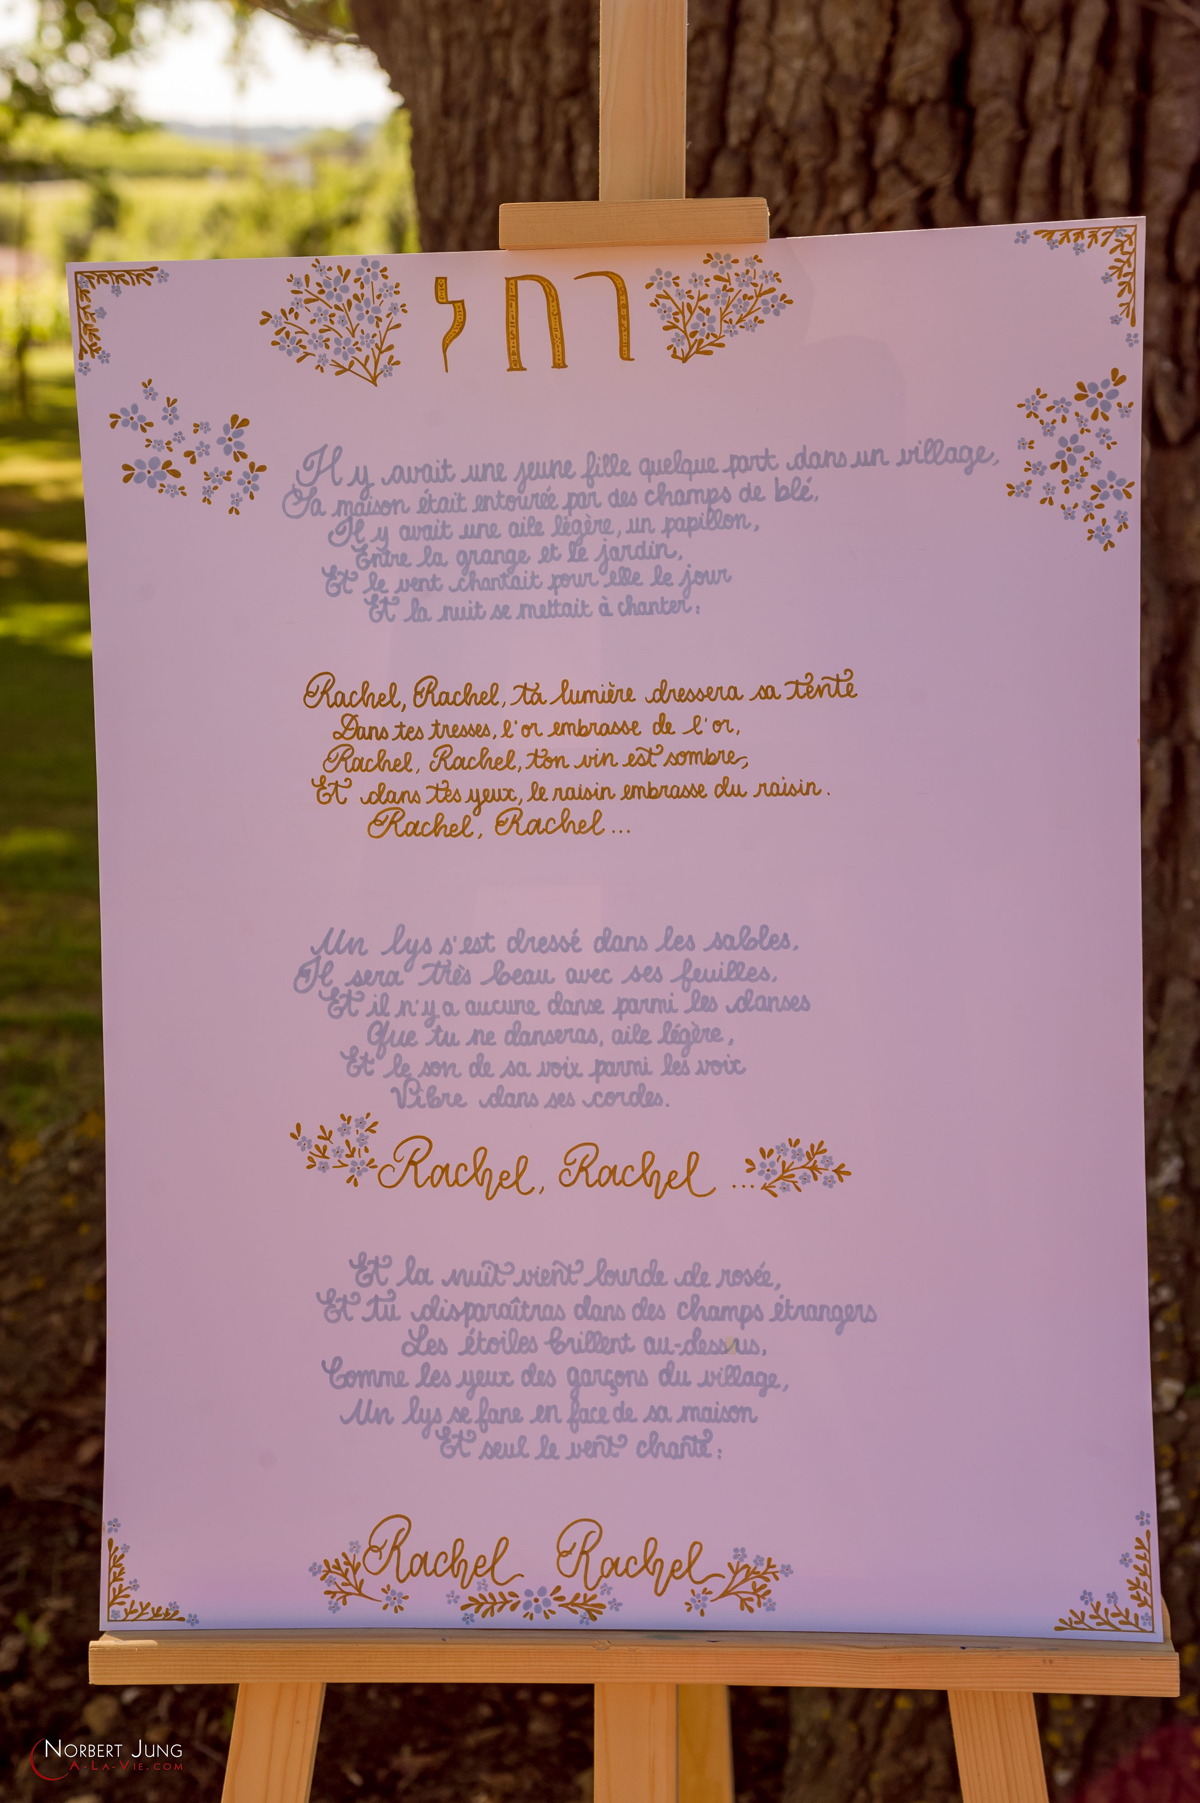 רחל
Il y avait une jeune fille quelque part dans un village,
Sa maison était entourée par des champs de blé,
Il y avait une aile légère, un papillon,
Entre la grange et le jardin,
Et le vent chantait pour elle le jour
Et la nuit se mettait à chanter :
Rachel, Rachel, ta lumière dressera sa tente
Dans tes tresses, l'or embrasse de l'or,
Rachel, Rachel, ton vin est sombre,
Et dans tes yeux, le raisin embrasse du raisin.
Rachel, Rachel...
Un lys s'est dressé dans les sables,
Il sera très beau avec ses feuilles,
Et il n'y a aucune danse parmi les danses
Que tu ne danseras, aile légère,
Et le son de sa voix parmi les voix
Vibre dans ses cordes.
Rachel, Rachel ...
Et la nuit vient lourde de rosée,
Et tu disparaîtras dans des champs étrangers
Les étoiles brillent au-dessus,
Comme les yeux des garçons du village,
Un lys se fane en face de sa maison
Et seul le vent chante :
Rachel Rachel
Norbert Jung
A-La-Vie.com